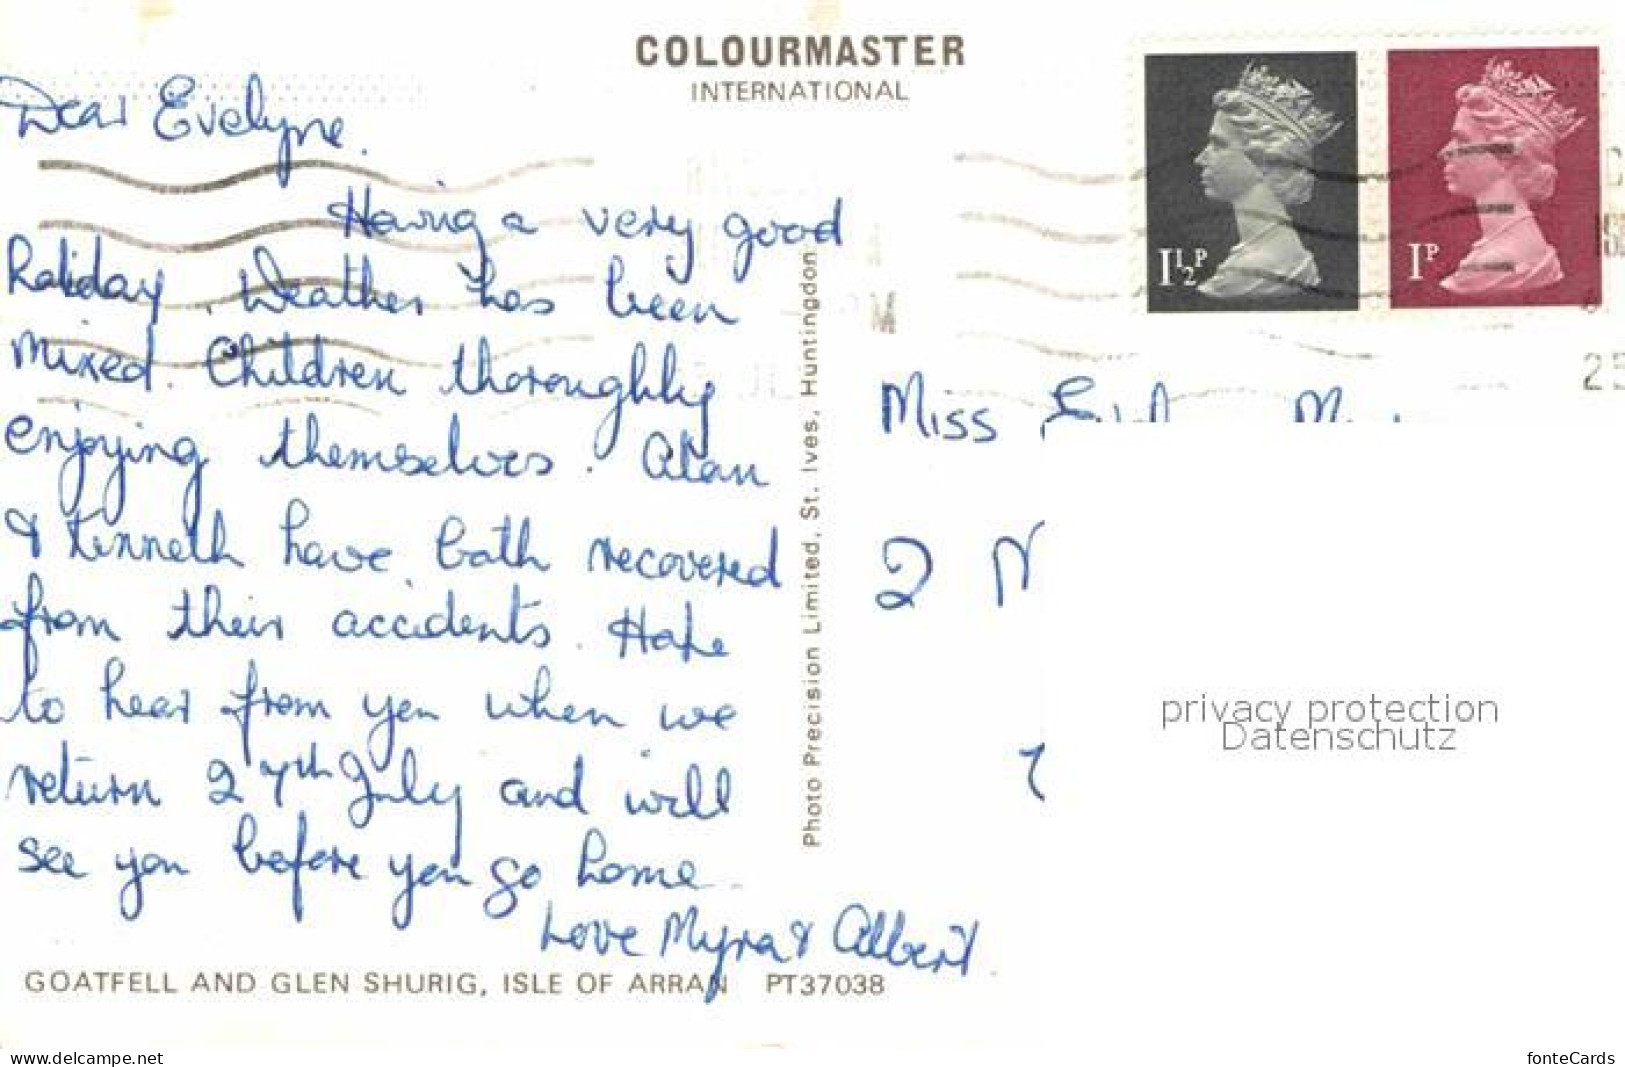 COLOURMASTER
INTERNATIONAL
Dear Evelyne.
Having a very good
holiday. Weather has been
mixed. Children thoroughly
enjoying themselves. Alan
& Kenneth have both recovered
from their accidents. Hope
to hear from you when we
return 27th July and will
see you before you go home.
Love Myra & Albert.
GOATFELL AND GLEN SHURIG, ISLE OF ARRAN PT37038
Photo Precision Limited, St. Ives, Huntingdon
1½P
1P
25
Miss
2
privacy protection
Datenschutz
www.delcampe.net
fonteCards